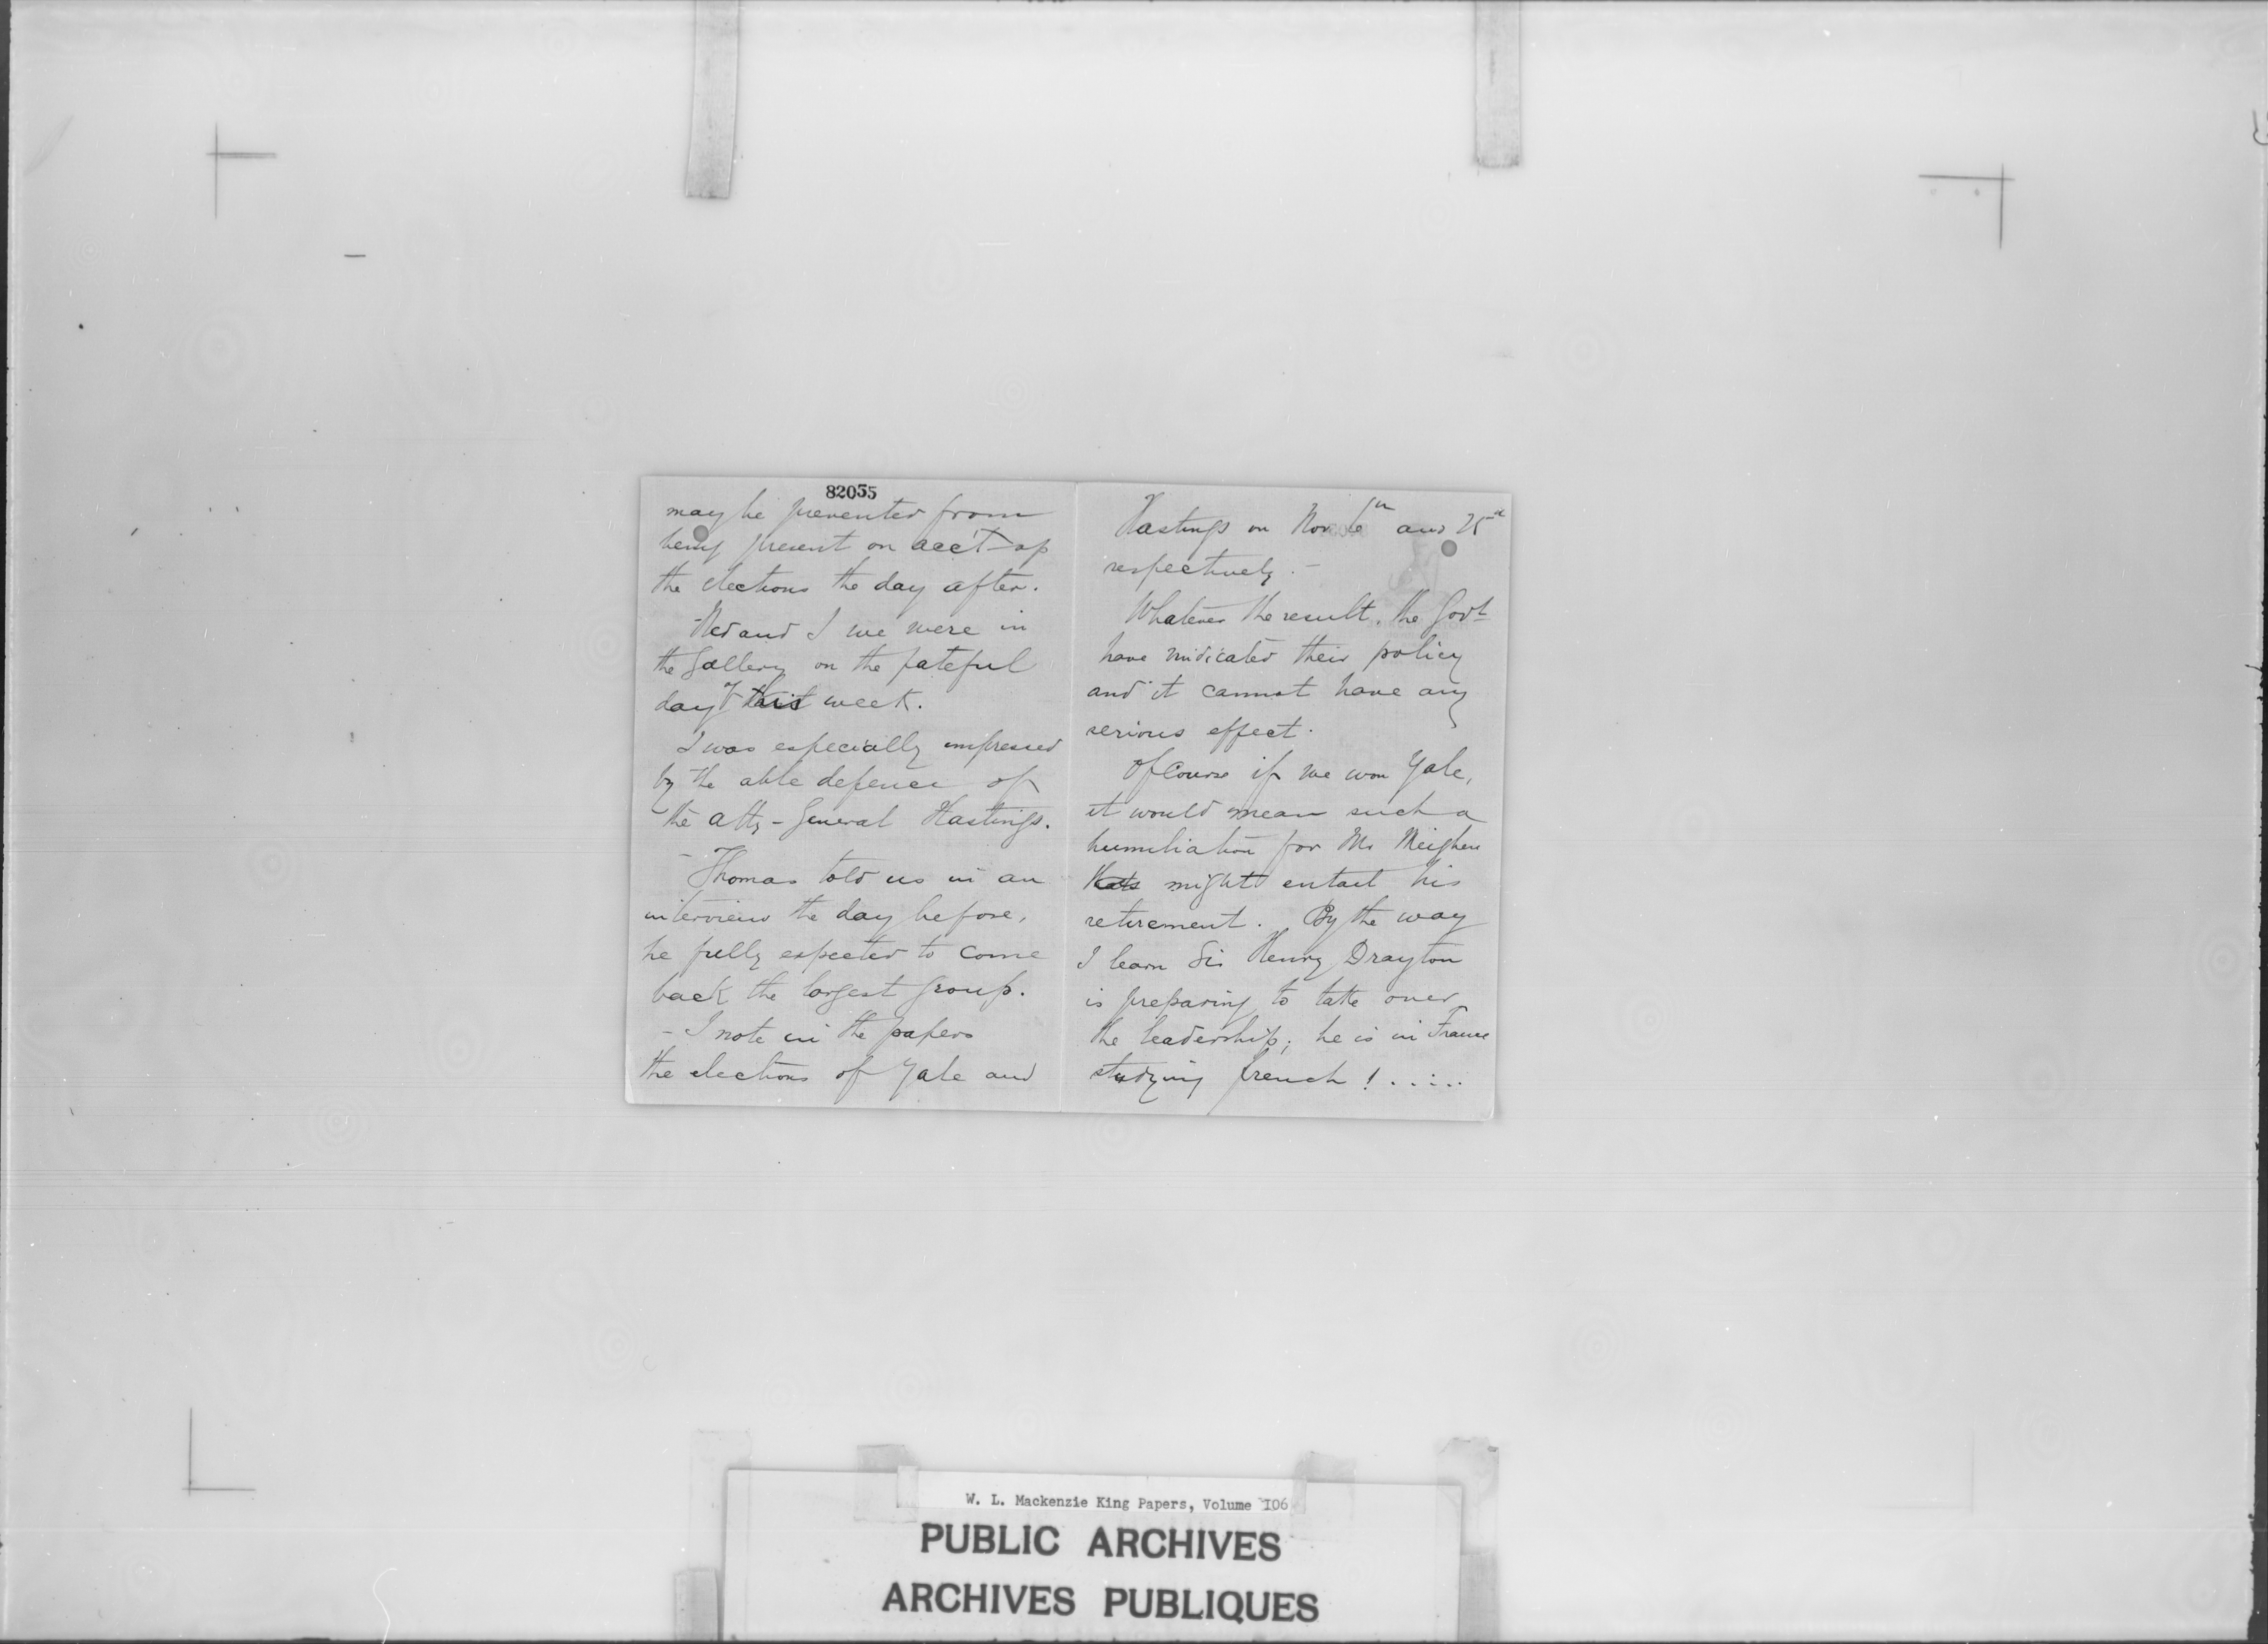 82055
may be prevented from
being present on acc't of
the elections the day after.
Ned and I we were in
the Gallery on the fateful
day of this week.
I was especially impressed
by the able defence of
the Atty-General Hastings.
- Thomas told us in an
interview the day before,
he fully expected to come
back the largest group.
- I note in the papers
the elections of Yale and
Hastings on Nov 6th and 25th
respectively. -
Whatever the result, the Govt
have vindicated their policy
and it cannot have any
serious effect.
Of Course if we won Yale,
it would mean such a
humiliation for Mr Meighen
that might entail his
retirement. By the way
I learn Sir Henry Drayton
is preparing to take over
the leadership; he is in France
studying french! .....
W. L. Mackenzie King Papers, Volume 106
PUBLIC ARCHIVES
ARCHIVES PUBLIQUES